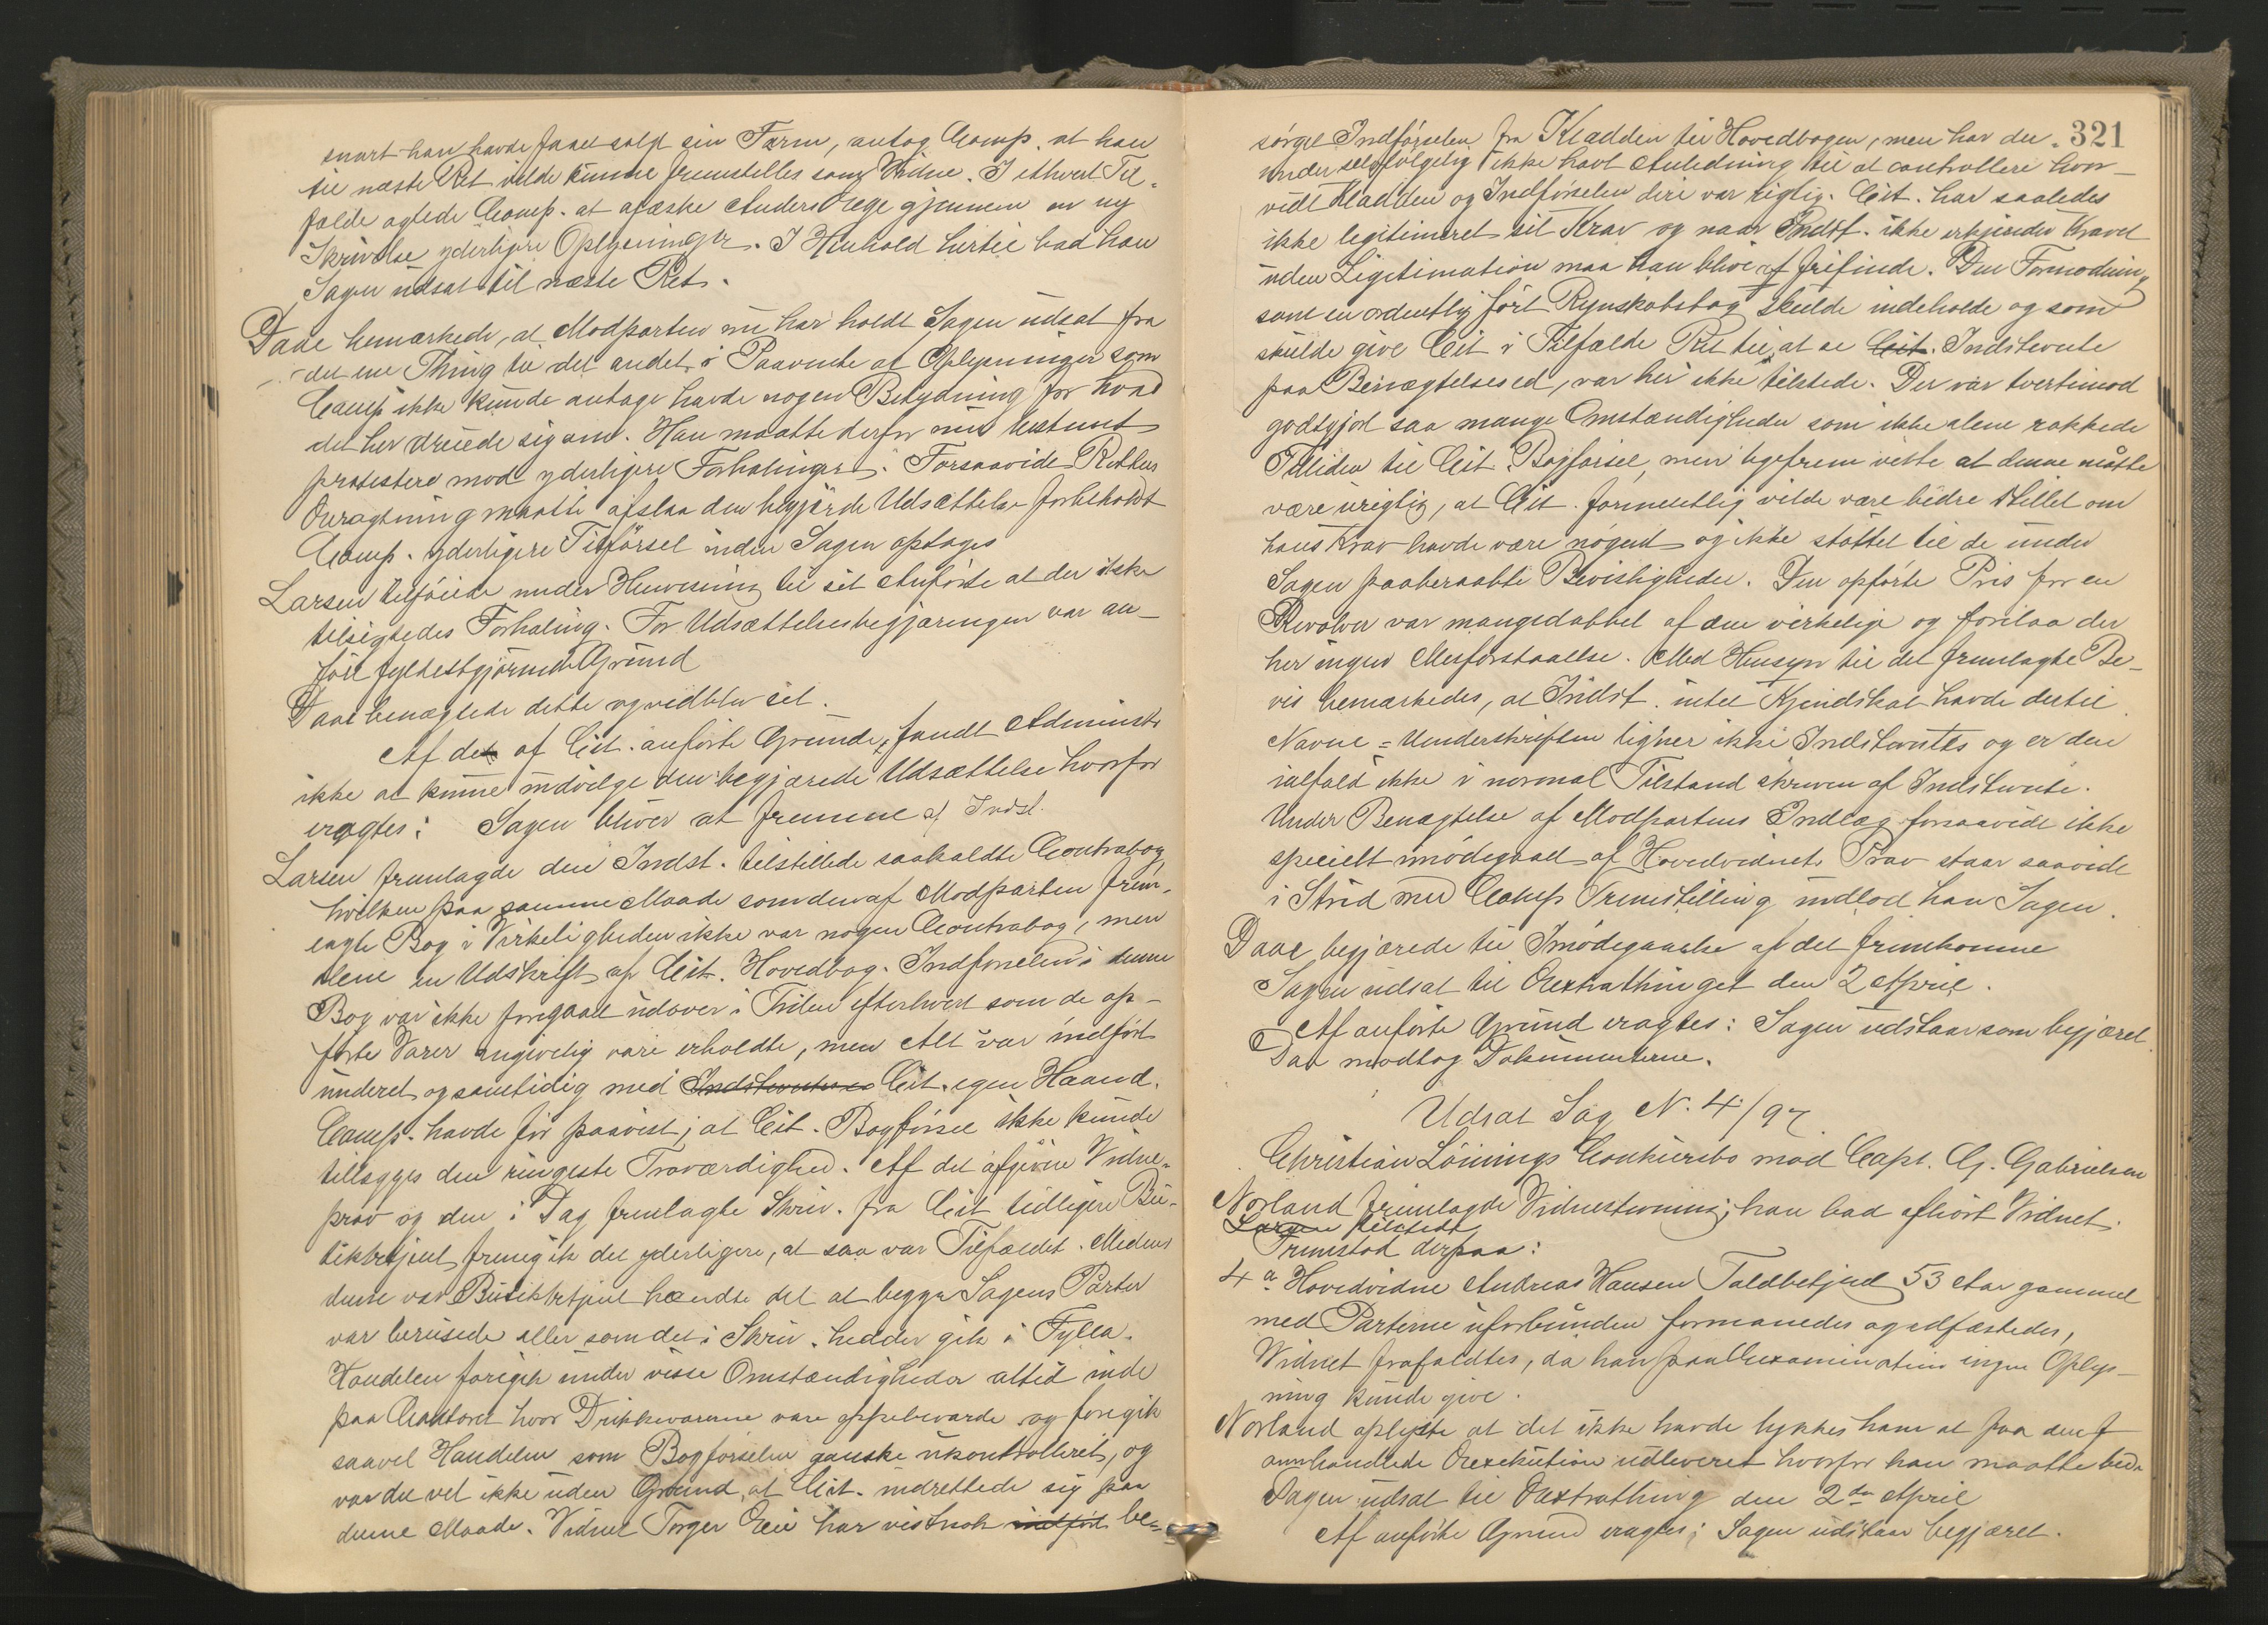 snart han havde faaet solgt sin Farm, antog Comp. at han
til næste Ret vilde kunne fremstilles som Vidne. I ethvert Til-
fælde agtede Comp. at afæske Anders Ege gjennem en ny
Skrivelse yderligere Oplysninger. I Henhold hertil bad han
Sagen udsat til næste Ret.
Daae bemærkede, at Modparten nu har holdt Sagen udsat fra
det ene Thing til det andet i Paavente af Oplysninger som
Comp ikke kunde antage havde nogen Betydning for hvad
det her dreiede sig om. Han maatte derfor nu bestemt
protestere mod yderligere Forhalinger. Forsaavidt Rettens
Overagtning maatte afslaa den begjærde Udsættelse forbeholdt
Comp. yderligere Tilførsel inden Sagen optages
Larsen tilføiede under Henvisning til sit Anførte at der ikke
tilsigtedes Forhaling. For Udsættelsesbegjæringen var an-
ført fyldestgjørende Grund
Daae benægtede dette og vedblev sit.
Af det af Cit. anførte Grunde, fandt Administr
ikke at kunne indvilge den begjærede Udsættelse hvorfor
eragtes: Sagen bliver at fremme af Indst.
Larsen fremlagde den Indst. tilstillede saakaldte Contrabog
hvilken paa samme Maade som den af Modparten frem-
lagte Bog i Virkeligheden ikke var nogen Contrabog, men
alene en Udskrift af Cit. Hovedbog. Indførselen i denne
Bog var ikke foregaaet udover i Tiden efterhvert som de op-
førte Varer angivelig vare erholdte, men Alt var indført
underet og samtidig med Indstevntes Cit. egen Haand.
Comp. havde før paavist, at Cit. Bogførsel ikke kunde
tillægges den ringeste Troværdighed. Af det afgivne Vidne-
prov og den i Dag fremlagte Skriv. fra Cit tidligere Bu-
tikbetjent fremgik det yderligere, at saa var Tilfældet. Medens
denne var Butikbetjent hændte det at begge Sagens Parter
var berusede eller som det i Skriv. hedder gik i Fylla.
Handelen foregik under visse Omstændigheder altid inde
paa Contoret hvor Drikkevarerne vare oppebevarede og foregik
saavel Handelen som Bogførselen ganske ukontrolleret, og
var det vel ikke uden Grund, at Cit. indrettede sig paa
denne Maade. Vidnet Torger Eie har vistnok indført be-
321
sørget Indførselen fra Kladden til Hovedbogen, men har der-
under selvfølgelig ikke havt Anledning til at controllere hvor-
vidt Kladden og Indførselen deri var rigtig. Cit. har saaledes
ikke legitimeret sit Krav og naar Indst. ikke erkjender Kravet
uden Legitimation maa han blive at frifinde. Den Formodning
som en ordentlig ført Regnskabsbog skulde indeholde og som
skulde give Cit i Tilfælde Ret til at se Cit. Indstevnte
paa Benægtelsesed, var her ikke tilstede. Der var tvertimod
godtgjort saa mange Omstændigheder som ikke alene rokkede
Tilliden til Cit. Bogførsel, men ligefrem viste at denne måtte
være urigtig, at Cit. formentlig vilde være bedre stillet om
hans Krav havde være nøgent og ikke støttet til de under
Sagen paaberaabte Bevisligheder. Den opførte Pris for en
Revolver var mangedobbel af den virkelige og forelaa der
her ingen Misforstaaelse. Med Hensyn til det fremlagte Be-
vis bemærkedes, at Indst. intet Kjendskab havde dertil
Navne-Underskriften ligner ikke Indstevntes og er den
ialfald ikke i normal Tilstand skreven af Indstevnte.
Under Benægtelse af Modpartens Indlæg forsaavidt ikke
specielt imødegaaet af Hovedvidnets Prov staar saavidt
i Strid med Comps Fremstilling indlod han Sagen.
Daae begjærede til Imødegaaelse af det fremkomne
Sagen udsat til Extrathinget den 2 April.
Af anførte Grund eragtes: Sagen udstaar som begjæret
Daae modtog Dokumenterne.
Udsat Sag N. 4/97
Christian Lønings Conkursbo mod Capt. G. Gabrielsen
Norland fremlagde Vidnestevning; han bad afhørt Vidnet.
Larsen tilstede
Fremstod derpaa:
4a Hovedvidne Andreas Hansen Toldbetjent 53 Aar gammel
med Parterne uforbunden formanedes og edfæstedes,
Vidnet frafaldtes, da han paa Examination ingen Oplys-
ning kunde give.
Norland oplyste at det ikke havde lykkes ham at faa den f
omhandlede Exekution udleveret hvorfor han maatte bede
Sagen udsat til Extrathing den 2den April
Af anførte Grund eragtes; Sagen udstaar begjæret.